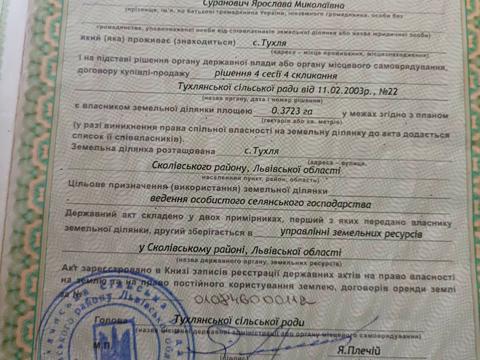 Суранович Ярослава Миколаївна
(прізвище, ім'я, по батькові громадянина України, іноземного громадянина, особи без
громадянства, уповноваженої особи від співвласників земельної ділянки або назва юридичної особи)
який (яка) проживає (знаходиться) с.Тухля
(адреса – місце проживання, місцезнаходження)
і на підставі рішення органу державної влади або органу місцевого самоврядування,
договору купівлі-продажу рішення 4 сесії 4 скликання
Тухлянської сільської ради від 11.02.2003р., №22
(назва органу, дата і номер рішення)
є власником земельної ділянки площею 0.3723 га у межах згідно з планом
(гектарів або кв. метрів)
(у разі виникнення права спільної власності на земельну ділянку до акта додається
список її співвласників).
Земельна ділянка розташована с.Тухля
(адреса – вулиця,
Сколівського району, Львівської області
населений пункт, район, область)
Цільове призначення (використання) земельної ділянки
ведення особистого селянського господарства
Державний акт складено у двох примірниках, перший з яких передано власнику
земельної ділянки, другий зберігається в управлінні земельних ресурсів
у Сколівському районі, Львівської області
(назва державного органу, земельних ресурсів)
Акт зареєстровано в Книзі записів реєстрації державних актів на право власності
на землю та на право постійного користування землею, договорів оренди землі
за №
Голова Тухлянської сільської ради
(назва місцевої державної адміністрації або органу місцевого самоврядування)
М.П. Я.Плечій
(підпис)